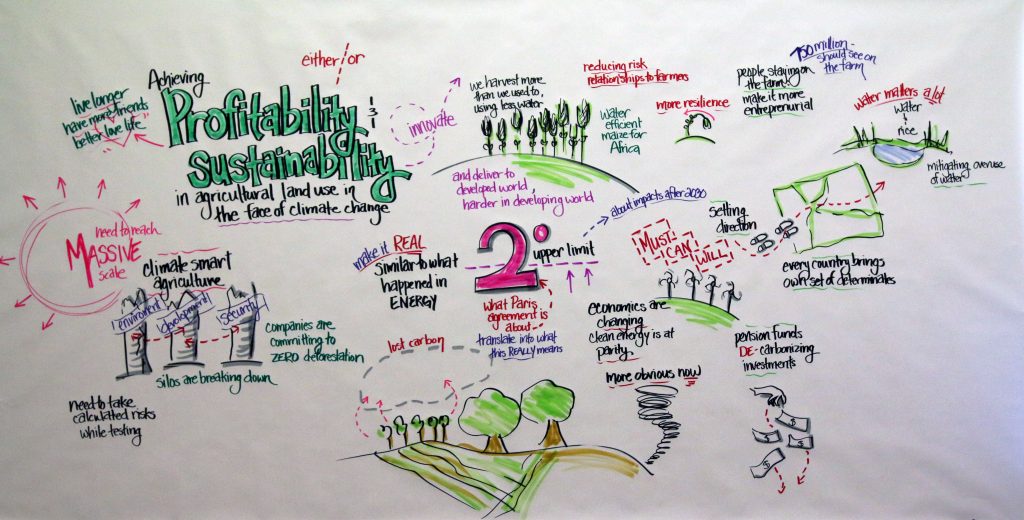 either/or
Achieving
Profitability
&
sustainability
in agricultural land use in
the face of climate change
live longer
have more friends
better love life
innovate
we harvest more
than we used to,
using less water
reducing risk
relationships to farmers
Water
efficient
maize for
Africa
more resilience
people staying on
the farm!
make it more
entreprenurial
750 million -
should see on
the farm
water matters a lot
water
↓
rice
mitigating overuse
of water
and deliver to
developed world,
harder in developing world
need to reach
MASSIVE
scale
climate smart
agriculture
enviroment
development
security
silos are breaking down
companies are
committing to
ZERO deforestation
need to take
calculated risks
while testing
make it REAL
similar to what
happened in
ENERGY
2°
upper limit
about impacts after 2030
what Paris
agreement is
about -
translate into what
this REALLY means
lost carbon
setting
direction
MUST
CAN
WILL
every country brings
own set of determinates
economics are
changing
clean energy is at
parity
more obvious now
pension funds
DE-carbonizing
investments
$
$
$
$